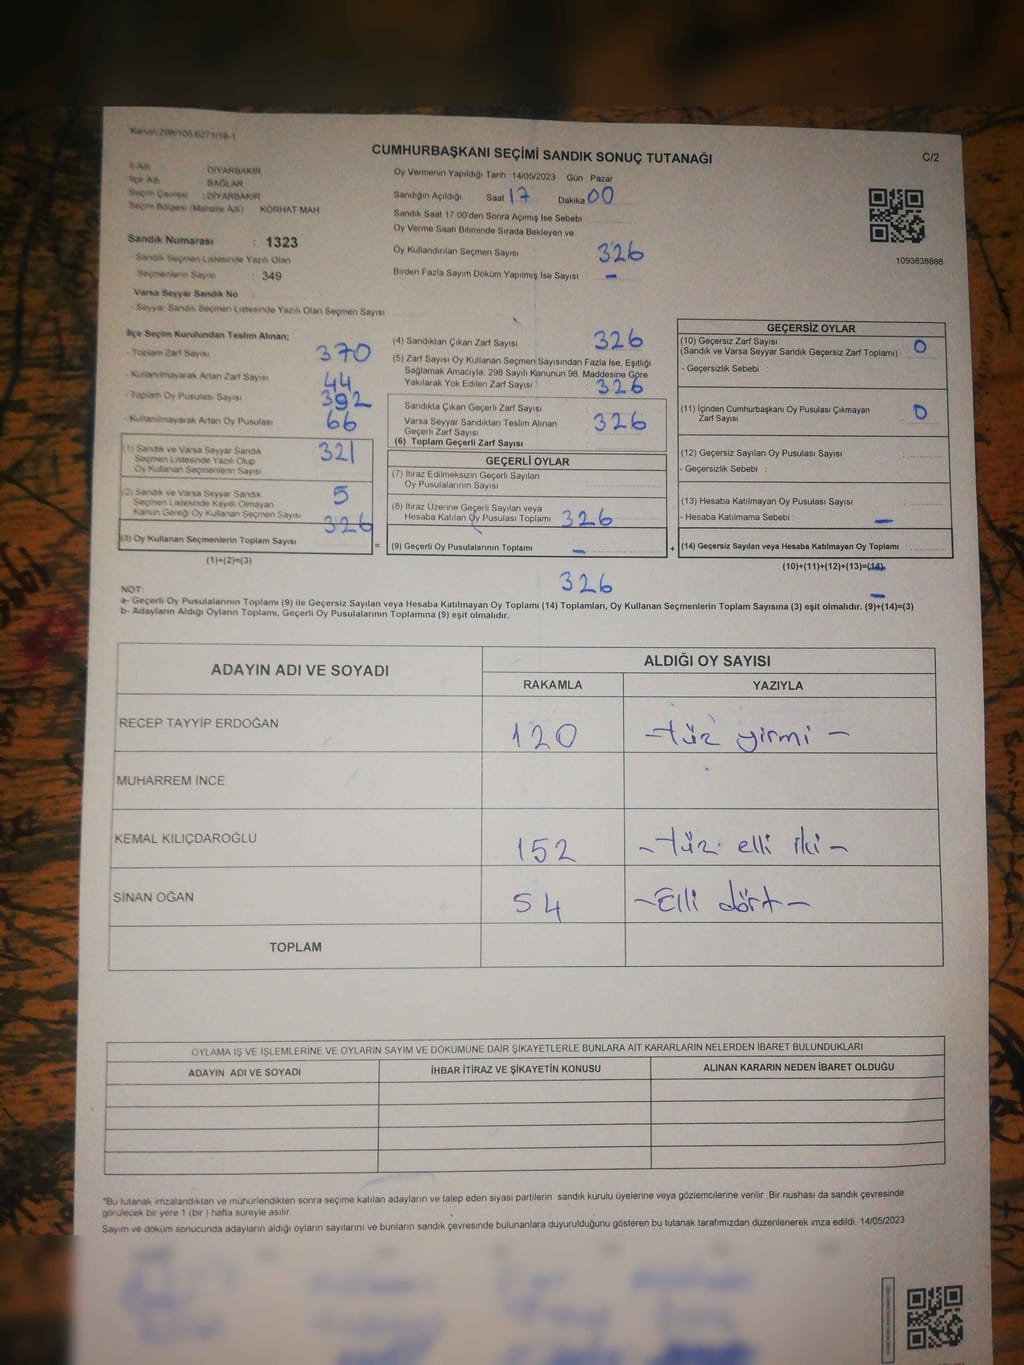 Kanun 298/105.6271/18-1
CUMHURBAŞKANI SEÇİMİ SANDIK SONUÇ TUTANAĞI
C/2
İl Adı : DİYARBAKIR
İlçe Adı : BAĞLAR
Seçim Çevresi : DİYARBAKIR
Seçim Bölgesi (Mahalle Adı) : KORHAT MAH
Sandık Numarası : 1323
- Sandık Seçmen Listesinde Yazılı Olan
Seçmenlerin Sayısı : 349
Varsa Seyyar Sandık No
- Seyyar Sandık Seçmen Listesinde Yazılı Olan Seçmen Sayısı
Oy Vermenin Yapıldığı Tarih : 14/05/2023 Gün : Pazar
Sandığın Açıldığı Saat 17 Dakika 00
Sandık Saat 17:00'den Sonra Açımış İse Sebebi :
Oy Verme Saati Bitiminde Sırada Bekleyen ve
Oy Kullandırılan Seçmen Sayısı 326
Birden Fazla Sayım Döküm Yapılmış İse Sayısı -
1093838888
İlçe Seçim Kurulundan Teslim Alınan;
- Toplam Zarf Sayısı 370
- Kullanılmayarak Artan Zarf Sayısı 44
- Toplam Oy Pusulası Sayısı 392
- Kullanılmayarak Artan Oy Pusulası 66
(1) Sandık ve Varsa Seyyar Sandık
Seçmen Listesinde Yazılı Olup
Oy Kullanan Seçmenlerin Sayısı 321
(2) Sandık ve Varsa Seyyar Sandık
Seçmen Listesinde Kayıtlı Olmayan
Kanun Gereği Oy Kullanan Seçmen Sayısı 5
326
(3) Oy Kullanan Seçmenlerin Toplam Sayısı
(1)+(2)=(3)
(4) Sandıktan Çıkan Zarf Sayısı 326
(5) Zarf Sayısı Oy Kullanan Seçmen Sayısından Fazla İse, Eşitliği
Sağlamak Amacıyla, 298 Sayılı Kanunun 98. Maddesine Göre
Yakılarak Yok Edilen Zarf Sayısı 326
Sandıkta Çıkan Geçerli Zarf Sayısı
Varsa Seyyar Sandıktan Teslim Alınan
Geçerli Zarf Sayısı 326
(6) Toplam Geçerli Zarf Sayısı
GEÇERLİ OYLAR
(7) İtiraz Edilmeksizin Geçerli Sayılan
Oy Pusulalarının Sayısı
(8) İtiraz Üzerine Geçerli Sayılan veya
Hesaba Katılan Oy Pusulası Toplamı 326
= (9) Geçerli Oy Pusulalarının Toplamı - +
326
GEÇERSİZ OYLAR
(10) Geçersiz Zarf Sayısı
(Sandık ve Varsa Seyyar Sandık Geçersiz Zarf Toplamı) 0
- Geçersizlik Sebebi :
(11) İçinden Cumhurbaşkanı Oy Pusulası Çıkmayan
Zarf Sayısı 0
(12) Geçersiz Sayılan Oy Pusulası Sayısı
- Geçersizlik Sebebi :
(13) Hesaba Katılmayan Oy Pusulası Sayısı
- Hesaba Katılmama Sebebi : -
(14) Geçersiz Sayılan veya Hesaba Katılmayan Oy Toplamı :
(10)+(11)+(12)+(13)=(14)
-
NOT:
a- Geçerli Oy Pusulalarının Toplamı (9) ile Geçersiz Sayılan veya Hesaba Katılmayan Oy Toplamı (14) Toplamları, Oy Kullanan Seçmenlerin Toplam Sayısına (3) eşit olmalıdır. (9)+(14)=(3)
b- Adayların Aldığı Oyların Toplamı, Geçerli Oy Pusulalarının Toplamına (9) eşit olmalıdır.
ADAYIN ADI VE SOYADI ALDIĞI OY SAYISI
RAKAMLA YAZIYLA
RECEP TAYYİP ERDOĞAN 120 -Yüz yirmi-
MUHARREM İNCE
KEMAL KILIÇDAROĞLU 152 -Yüz elli iki-
SİNAN OĞAN 54 -Elli dört-
TOPLAM
OYLAMA İŞ VE İŞLEMLERİNE VE OYLARIN SAYIM VE DÖKÜMÜNE DAİR ŞİKAYETLERLE BUNLARA AİT KARARLARIN NELERDEN İBARET BULUNDUKLARI
ADAYIN ADI VE SOYADI İHBAR İTİRAZ VE ŞİKAYETİN KONUSU ALINAN KARARIN NEDEN İBARET OLDUĞU
*Bu tutanak imzalandıktan ve mühürlendikten sonra seçime katılan adayların ve talep eden siyasi partilerin sandık kurulu üyelerine veya gözlemcilerine verilir. Bir nüshası da sandık çevresinde
görülecek bir yere 1 (bir) hafta süreyle asılır.
Sayım ve döküm sonucunda adayların aldığı oyların sayılarını ve bunların sandık çevresinde bulunanlara duyurulduğunu gösteren bu tutanak tarafımızdan düzenlenerek imza edildi. 14/05/2023